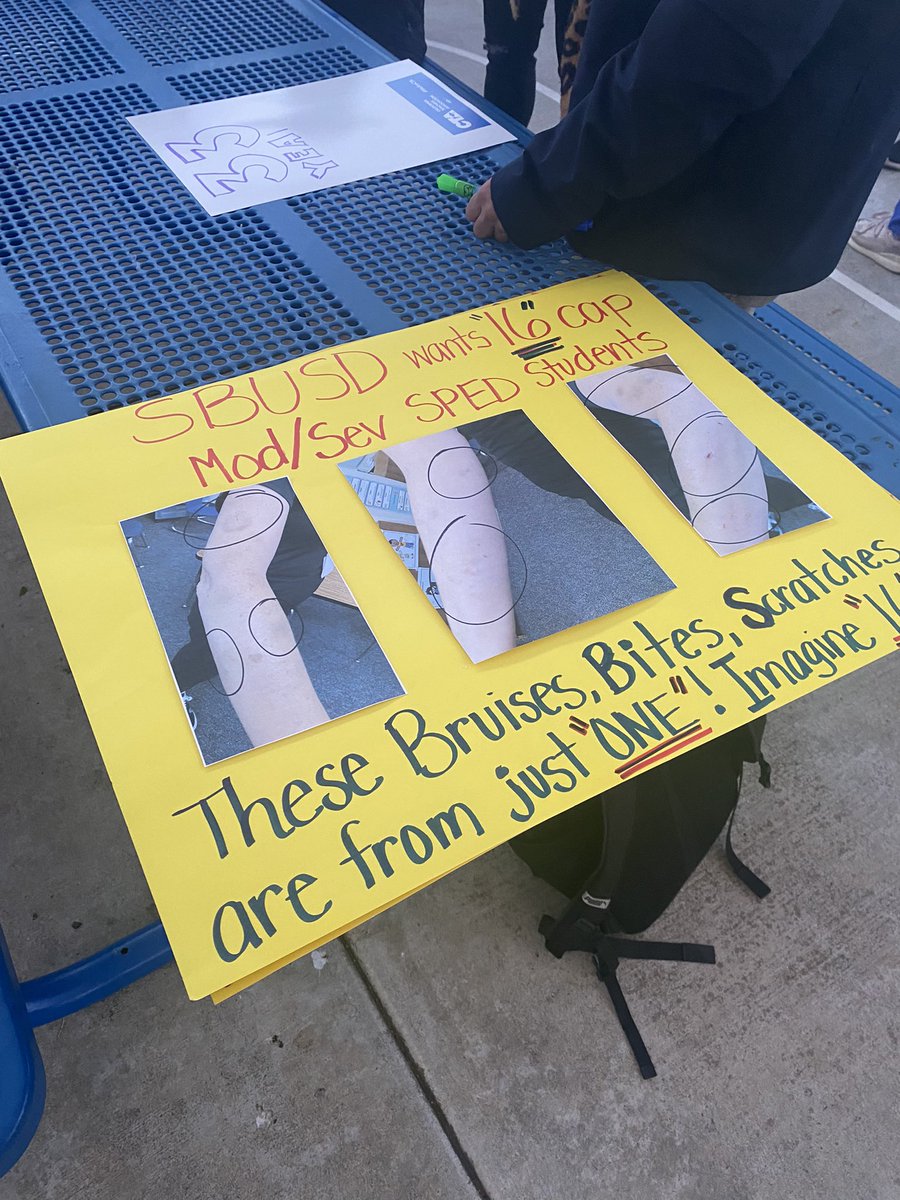 CTA
SBUSD wants "16" cap
Mod/Sev SPED Students
These Bruises, Bites, Scratches
are from just "ONE"! Imagine "16